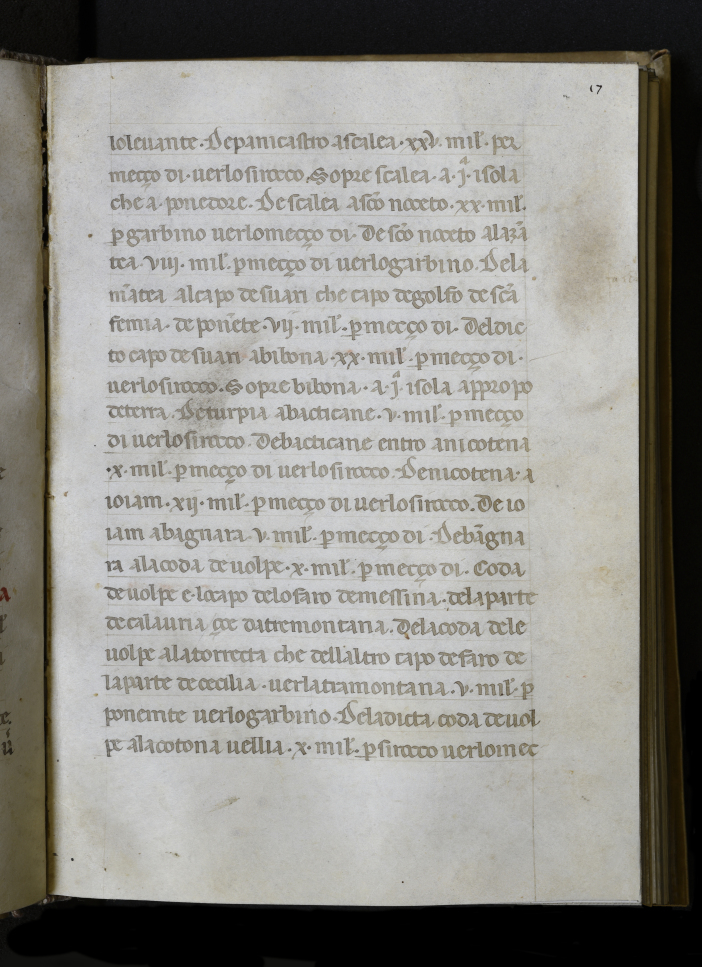 17
loleuante · Depanicastro ascalea · xxv · mil̃ · per
meço di · uerlosirocco. Sopre scalea · a · j̃ · isola
che a · ponedore. De scalea asc̃o noceto · xx · mil̃ ·
p̱ garbino uerlomeço di · De sc̃o noceto ala
tea · viij · mil̃ · p̱ meço di uerlogarbino. Dela
matea alcapo de suari che capo degolfo de sc̃a
femia · de ponẽte · vij · mil̃ · p̱ meço di · Deldic
to capo de suari abibona · xx · mil̃ · p̱ meço di ·
uerlosirocco. Sopre bibona · a · j̃ · isola appropo
deterra. De turpia abacticane · v · mil̃ · p̱ meço
di uerlosirocco. Debacticane entro anicotena
· x · mil̃ · p̱ meço di uerlosirocco. Denicotena · a
ioiam · xij · mil̃ · p̱ meço di uerlosirocco. De io
iam abagnara · v · mil̃ · p̱ meço di · Debãgna
ra alacoda de uolpe · x · mil̃ · p̱ meço di · Coda
de uolpe e · locapo delofaro demessina · delaparte
de calauria çoe datremontana. Delacoda dele
uolpe alatorrecta che dellaltro capo defaro de
laparte dececilia · uerlatramontana · v · mil̃ · p̱
ponemte uerlogarbino · Deladicta coda de uol
pe alacotona uellia · x · mil̃ · p̱ sirocco uerlomec